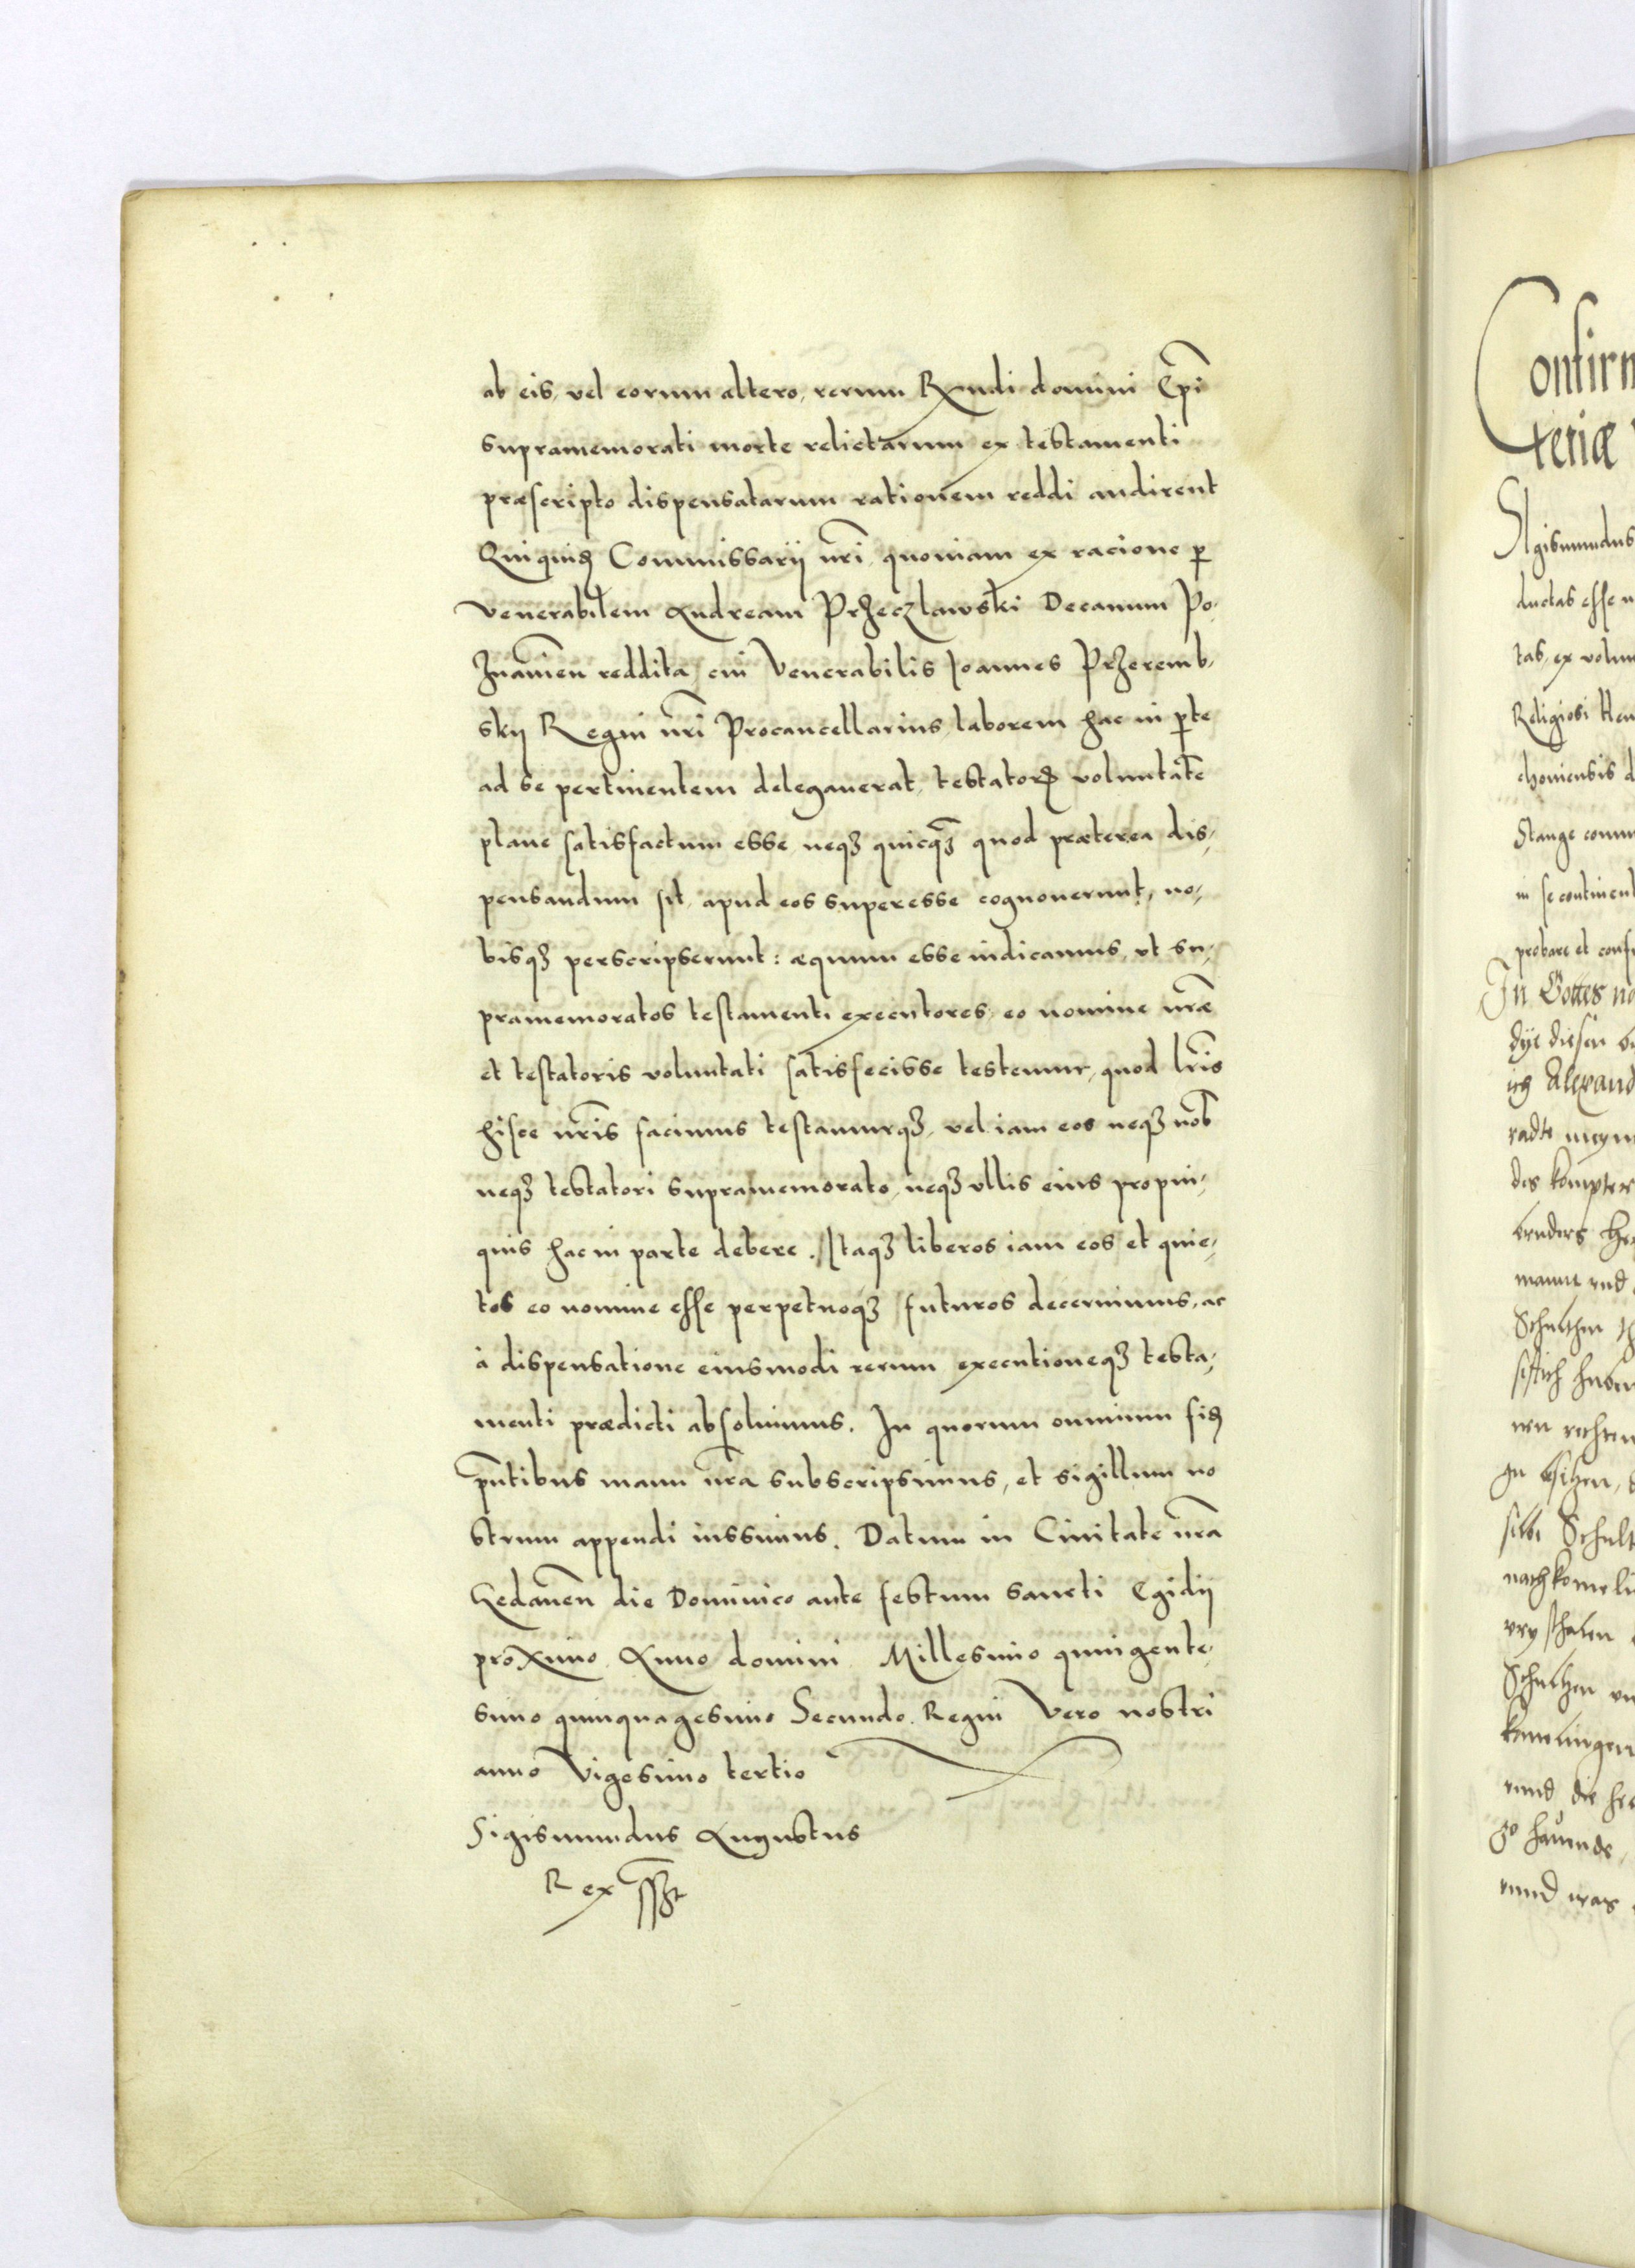 ab eis, vel eorum altero, rerum Rxndi domini Ep̃i
supramemorati morte relictarum ex testamenti
præscripto dispensatarum rationem reddi audirent
Qui quid Commissarij nr̃i, quoniam ex racione p
Venerabilem Andream Przeczlawski Decanum Po,
Znanien̄ reddita, cui Venerabilis Joannes Przeremb,
skij Regni nr̃i Procancellarius, laborem hac in pte
ad se pertinentem delegauerat, testatoris voluntate
plane satisfactum esse, neqз quicq̃з quod præterea dis,
pensandum sit, apud eos superesse cognouerunt, no,
bisqз perscripserunt: æquum esse iudicamus, vt su,
pramemoratos testamenti executores, eo nomine nr̃æ
et testatoris voluntati satisfecisse testemur, quod lr̃is
hisce nr̃is facimus testamurqз, vel iam eos neqз nob̄
neqз testatori supramemorato, neqз vllis eius propin,
quis hac in parte debere. Itaqз liberos iam eos et quie,
tos eo nomine esse perpetuoqз futuros decernimus, ac
à dispensatione eiusmodi rerum executioneqз testa,
menti prædicti absoluimus. In quorum omnium fid
pñtibus manu nr̃a subscripsimus, et sigillum no
strum appendi iussimus. Datum in Ciuitate nr̃a
Gedanen̄ die Dominico ante festum Sancti Egidij
proximo Anno domini Millesimo quingente,
simo quinquagesimo Secundo. Regni Vero nostri
anno Vigesimo tertio
Sigismundus Augustus
Rex sszt
Confirm
teriæ
SIgismundus
ductas esse
tas, ex volun
Religiosi Hen
choniensis d
Stange comm
in se continent
probare et conf
In Gottes na
dye diesen
ich Alexand
radte
des kompter
bruders He
mann vnd
Schultzen
nen rechten
zu besitzen,
Schult
nachkomeli
Schultzen vn
komelingen
vnnd die
vnnd was